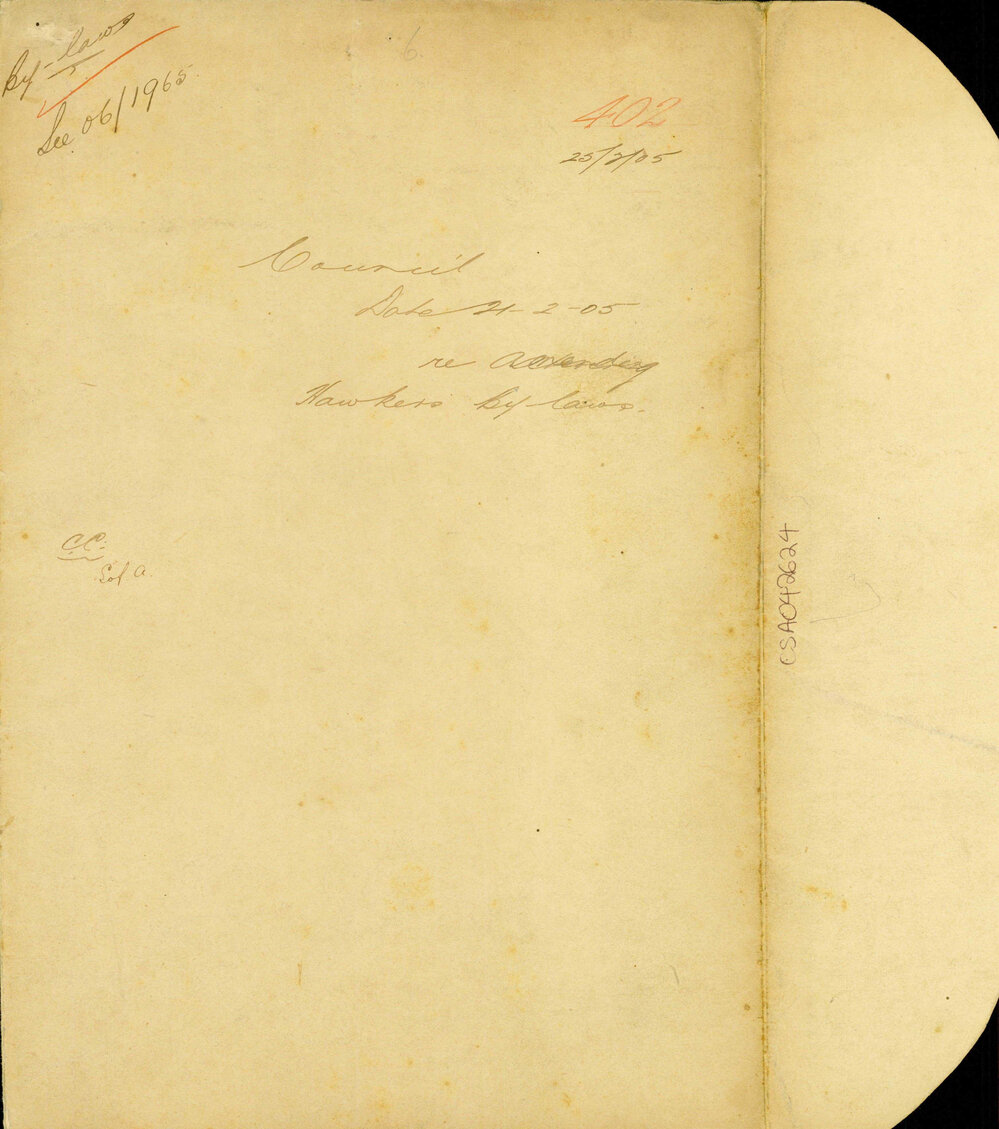 By-laws
See 06/1965.
6.
402
25/2/05
Council
Date 21-2-05
re Amending
Hawkers By laws.
C.C.
Sol a.
CSA042624